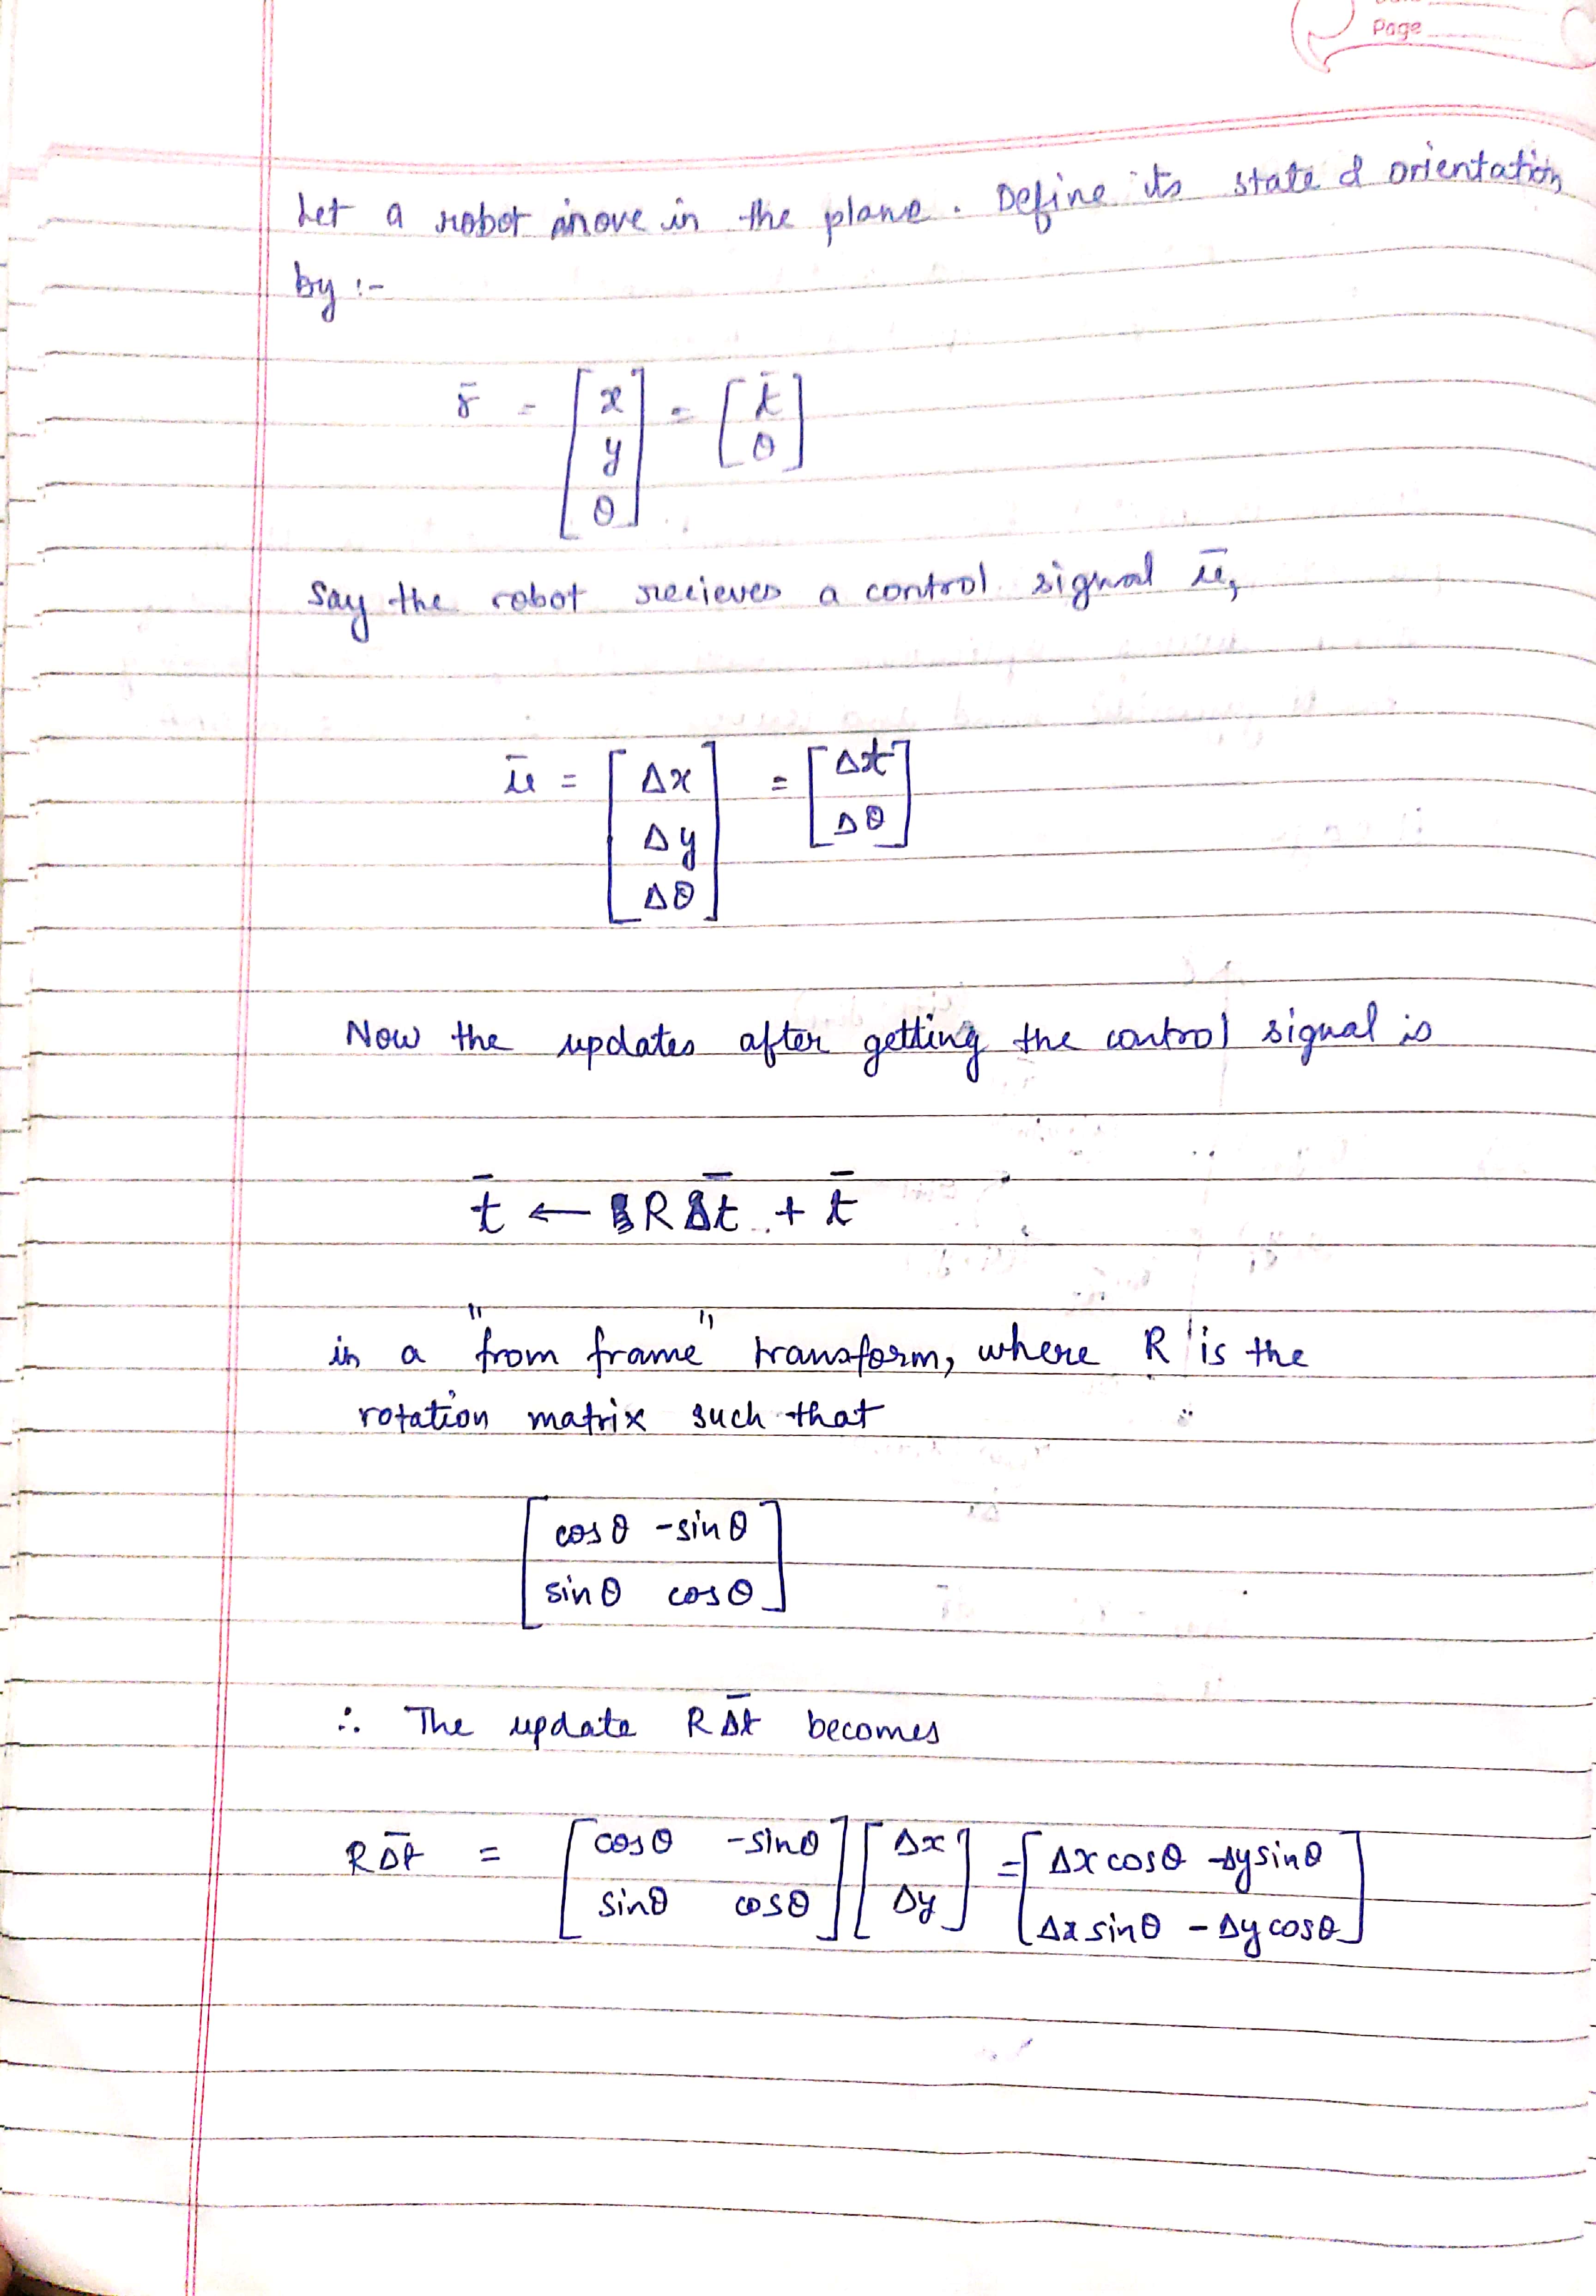 Page
Let a robot move in the plane. Define its state & orientation
by :-
r̄ = [x y θ] = [t̄ θ]
Say the robot recieves a control signal ū,
ū = [Δx Δy Δθ] = [Δt Δθ]
Now the updates after getting the control signal is
t̄ ← R Δ̄t + t̄
in a "from frame" transform, where R is the
rotation matrix such that
[cosθ -sinθ
sinθ cosθ]
∴ The update R Δ̄t becomes
R Δ̄t = [cosθ -sinθ; sinθ cosθ] [Δx; Δy] = [Δx cosθ -Δy sinθ; Δx sinθ - Δy cosθ]